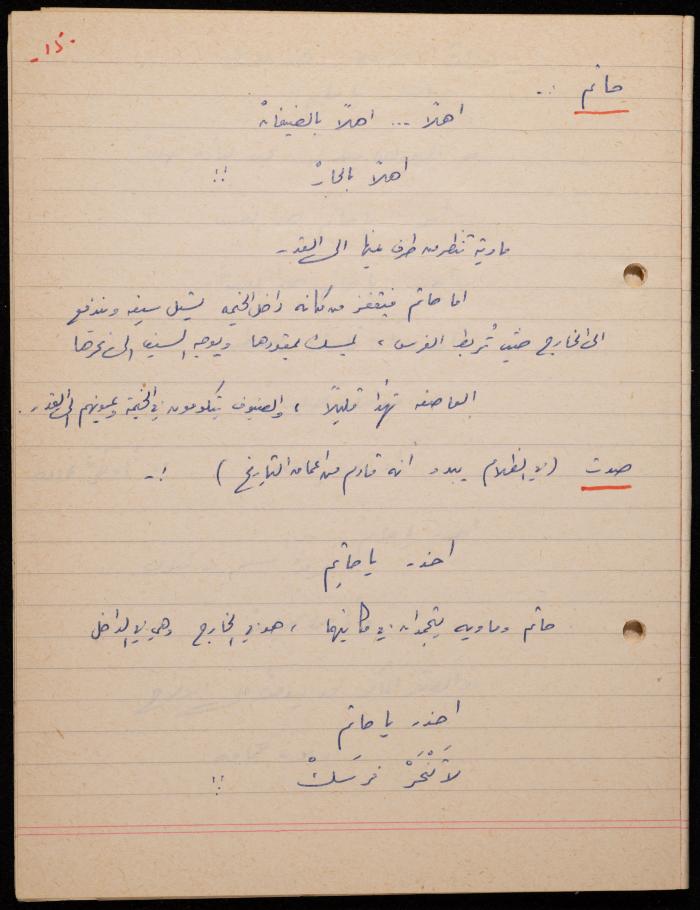 -١٥-
حاتم :-
اهلاً ... اهلاً بالضيفانْ
اهلاً بالجارْ !!
ماوية تنظر من طرف عينها الى القدر
اما حاتم فيقفز من مكانه داخل الخيمه يستل سيفه ويندفع
الى الخارج حيث تُربط الفرس ، يمسك بمقودها ويوجه السيف الى نحرها
العاصفه تهدأ قليلاً ، والضيوف يتكومون في الخيمة وعيونهم الى القدر .
صوت (في الظلام يبدو انه قادم من اعماق التاريخ) :-
احذر يا حاتم
حاتم وماويه يتجمدان في مكانيهما ، هو في الخارج وهي في الداخل
احذر يا حاتم
لا تَنْحَرْ فرسَكْ !!